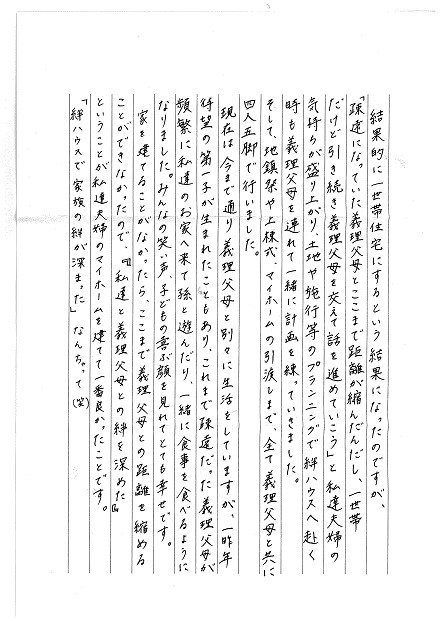 結果的に一世帯住宅にするという結果になったのですが、
「疎遠になっていた義理父母とここまで距離が縮んだんだし、一世帯
だけど引き続き義理父母を交えて話を進めていこう」と私達夫婦の
気持ちが盛り上がり、土地や施行等のプランニングで絆ハウスへ赴く
時も義理父母を連れて一緒に計画を練っていきました。
そして、地鎮祭や上棟式、マイホームの引渡しまで、全て義理父母と共に
四人五脚で行いました。
現在は今まで通り義理父母と別々に生活をしていますが、一昨年
待望の第一子が生まれたこともあり、これまで疎遠だった義理父母が
頻繁に私達のお家へ来て孫と遊んだり、一緒に食事を食べるように
なりました。みんなの笑い声、子どもの喜ぶ顔を見れてとても幸せです。
家を建てることがなかったら、ここまで義理父母との距離を縮める
ことができなかったので、『私達と義理父母との絆を深めた』
ということが私達夫婦のマイホームを建てて一番良かったことです。
「絆ハウスで家族の絆が深まった」なんちゃって(笑)